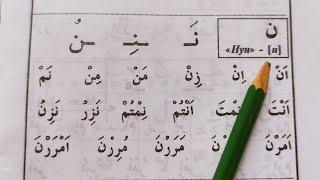 ن نَـ ـنِـ ـنُ
«Нун» - [н]
اَنْ اِنْ زِنْ مَنْ مِنْ نَمْ
اَنْتَ نِمْتَ اَنْتُمْ نِمْتُمْ نَزَرُ نَزِنُ
اَمَرْنَ مَرَرْنَ مُرِرْنَ اَمْرَرْنَ